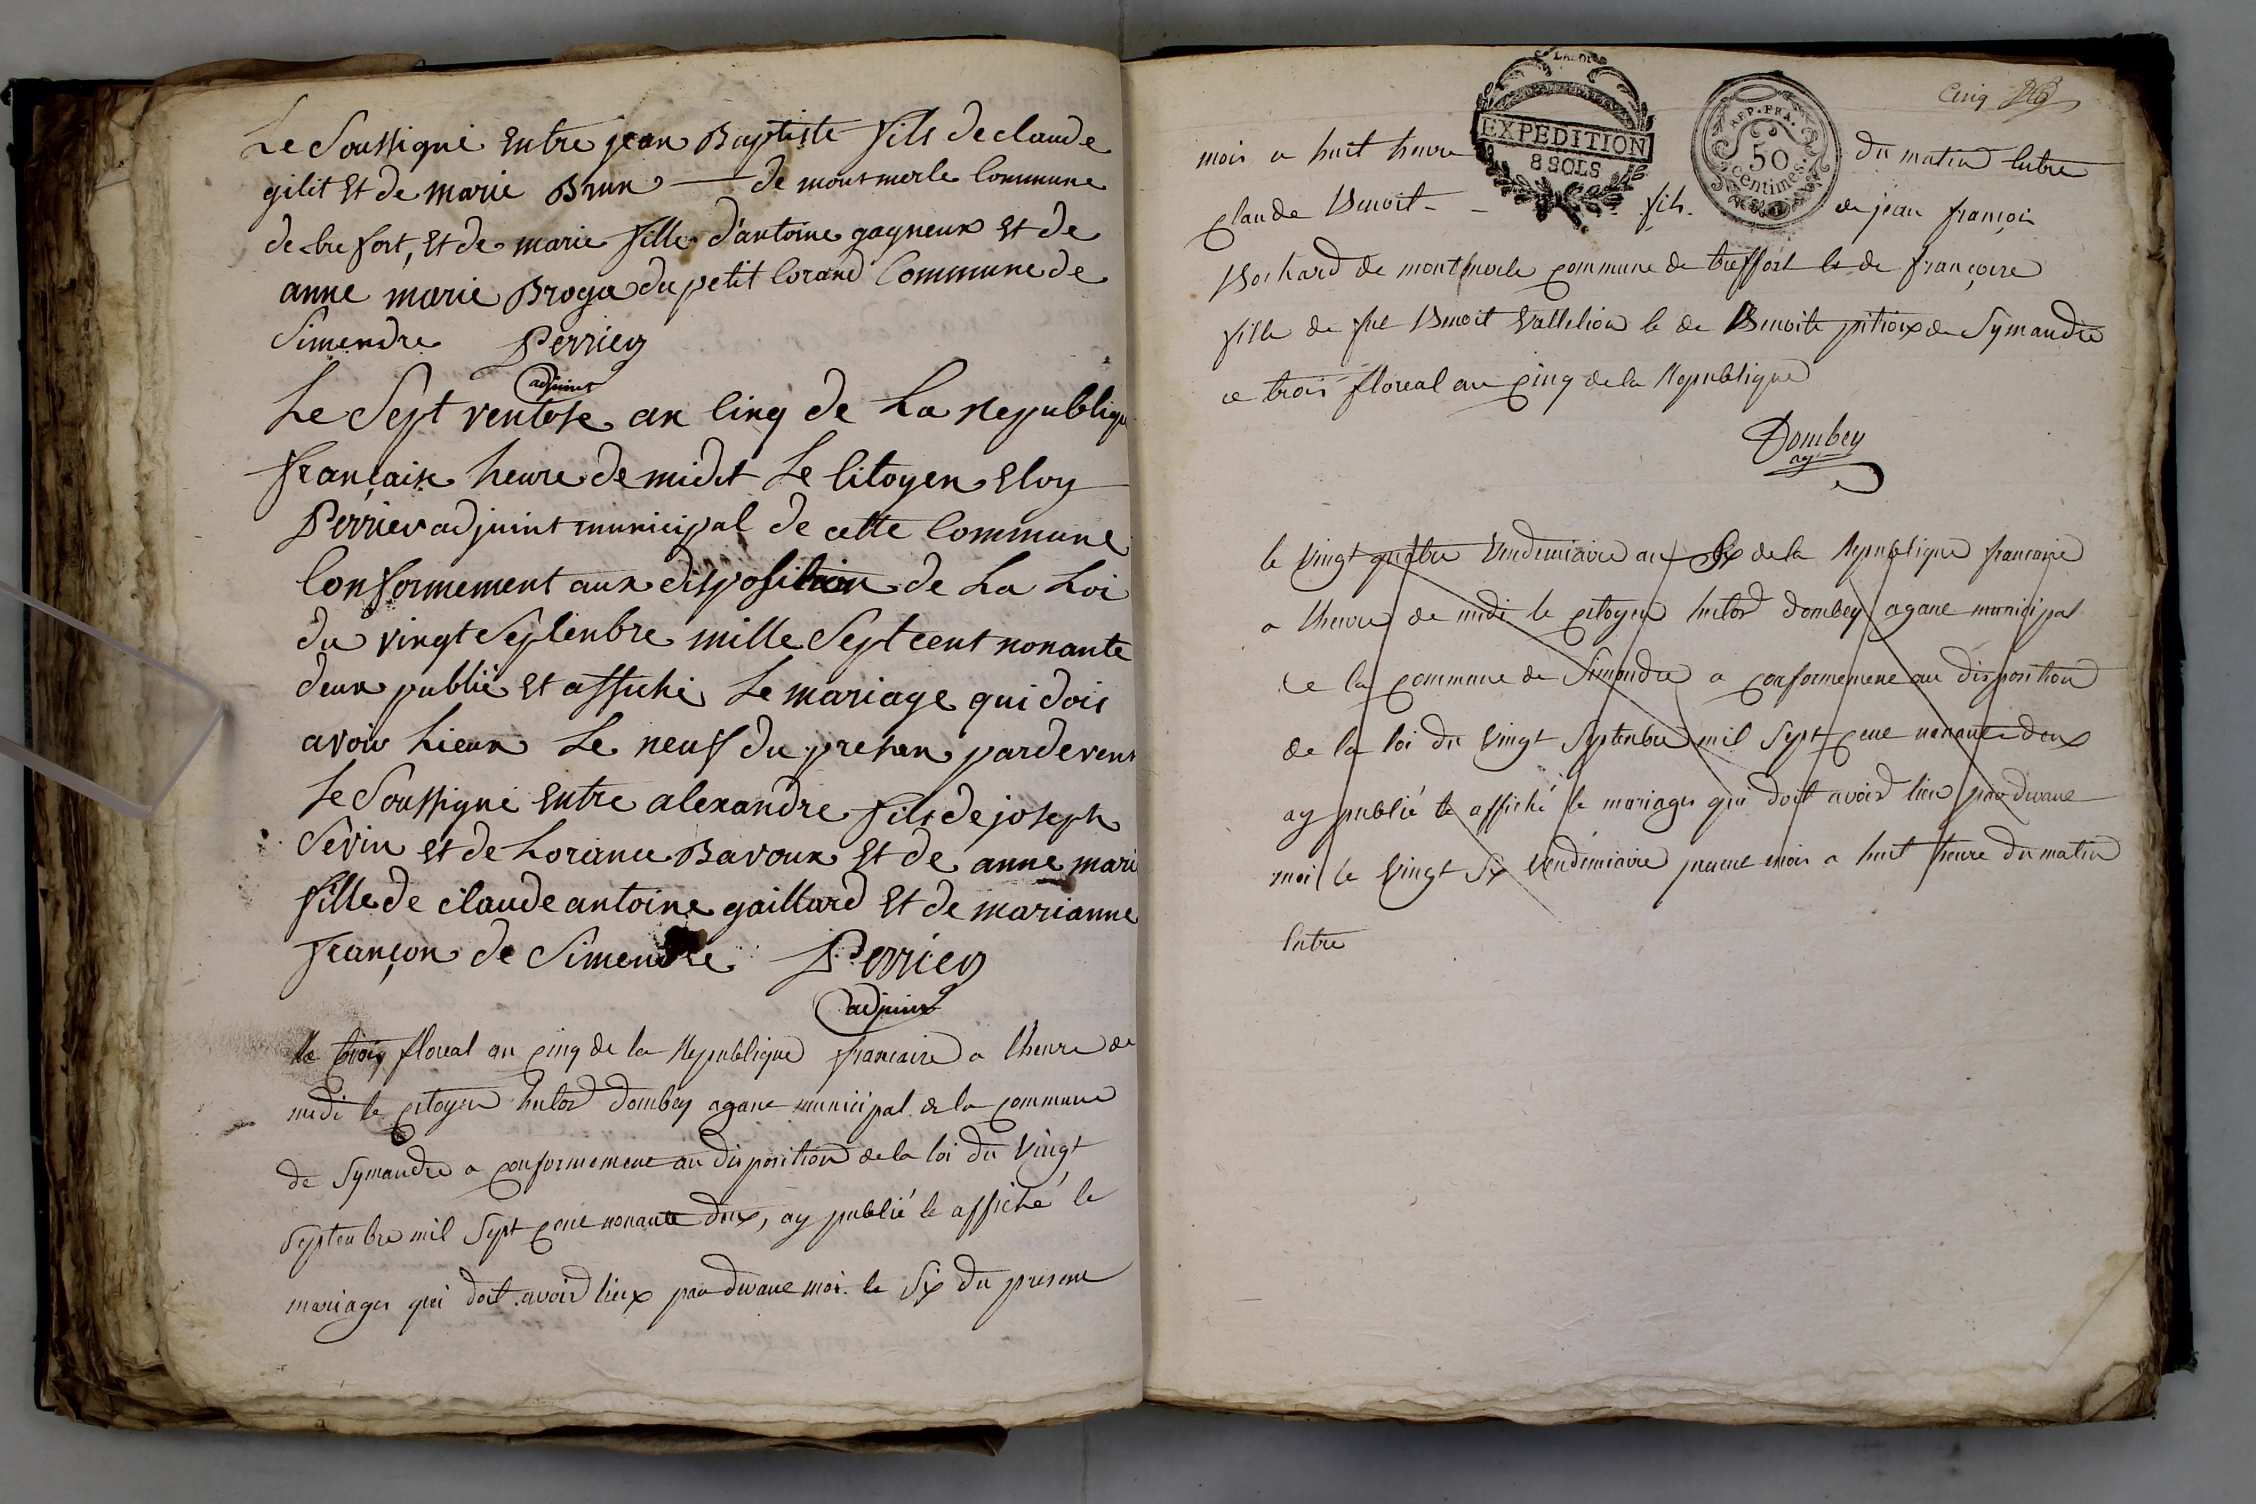 Le Soussigné Entre jean Baptiste fils de claude
gilet Et de marie Brun — de montmerle Commune
de trefort, Et de marie fille d'antoine gagneux Et de
anne marie Broga du petit Corand Commune de
Simendre Perrier
adjoint
Le Sept ventose an Cinq de La Republique
française heure de midit Le Citoyen Eloy
Perrier adjoint municipal de cette Commune
Conformement aux disposition de La Loi
du vingt Septenbre mille Sept cent nonante
deux publié Et affiché Le mariage qui dois
avoir Lieux Le neuf du presen pardevent
Le Soussigné Entre alexandre fils de joseph
Sevin et de Lorance Bavoux Et de anne mari
fille de claude antoine gaillard Et de marianne
françon de Simendre Perrier
adjoint
le trois floreal an cinq de la Republique francaise a lheure de
midi le citoyen hector dombey agant municipal de la commune
de Symandre a conformement au disposition de la loi du Vingt
Septenbre mil Sept cent nonante deux, ay publié et affiché le
mariages qui doit avoir lieux par devant moi le Six du present
Cinq
LA LOI
EXPEDITION
8 SOLS
REP. FRA.
50
centimes.
mois a huit heure du matin Entre
claude Benoit - - fils de jean françois
Bochard de montmerle commune de treffort et de françoise
fille de feu Benoit Vallelion et de Benoite pitioux de Symandre
ce trois floreal an cinq de la Republique
Dombey
ag
le Vingt quatre Vendemiaire an Six de la Republique francaise
a lheure de midi le citoyen hector dombey agant municipal
de la commune de Simandre a conformement au disposition
de la loi du Vingt Septenbre mil Sept cent nonante deux
ay publié et affiché le mariages qui doit avoir lieu par devant
moi le Vingt Six Vendemiaire present mois a huit heure du matin
Entre